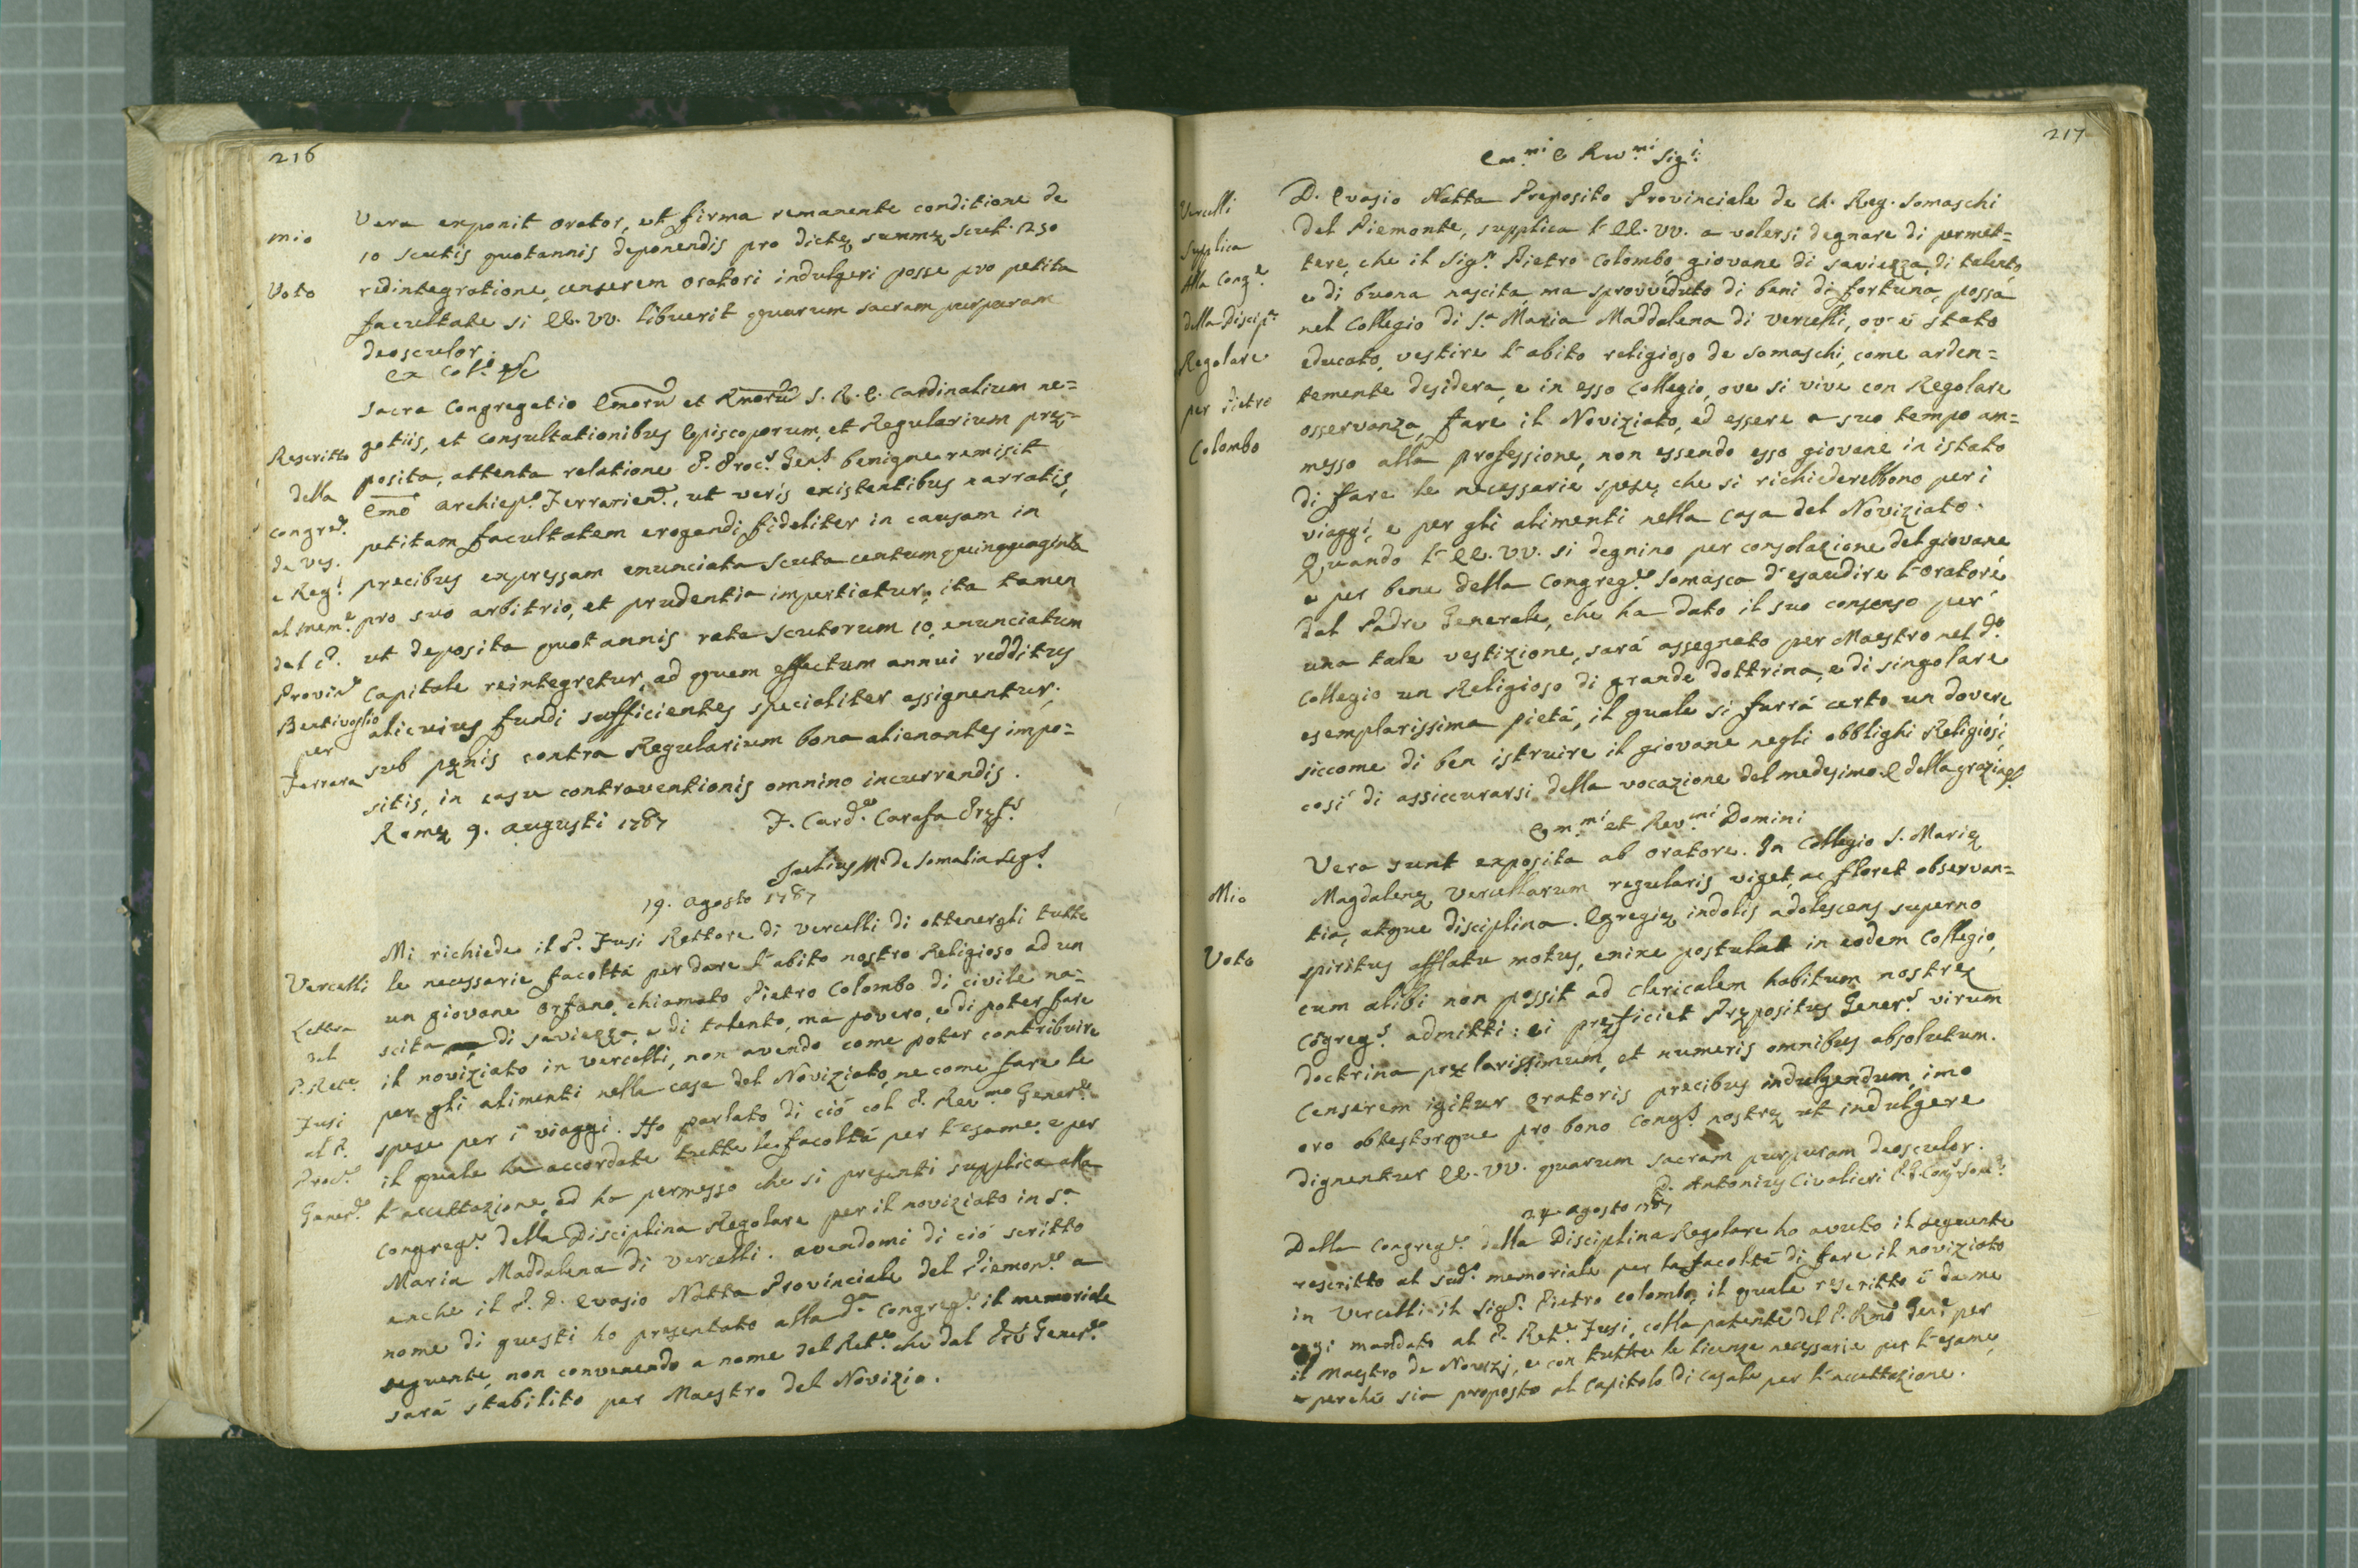 216
mio
Voto
Vera exponit orator, et firma remanente conditione de
10 scutis quotannis deponendis pro dictę summę scut. 1250
redintegratione, censerem oratori indulgeri posse pro petita
facultate si EE. VV. libuerit quarum sacram purpuram
deosculor.
Ex Col.º
Rescritto
della
Congre.e
de Ves.
e Reg.i
al mem.e
del P.
Provin.e
Bentivoglio
per
Ferrara
Sacra Congregatio Emorũ et Rmorũ S. R. E. Cardinalium ne=
gotiis, et consultationibus Episcoporum, et Regularium prę=
posita, attenta relatione P. Proc.s Gen.s benigne remisit
Emõ Archiep.o Ferrarien., ut veris existentibus narratis,
petitam facultatem erogandi fideliter in causam in
precibus expressam enunciata scuta centumquinquaginta
pro suo arbitrio, et prudentia impertiatur; ita tamen
ut deposita quotannis rata scutorum 10, enunciatum
capitale reintegretur, ad quem effectum annui redditus
alicuius fundi sufficientes specialiter assignentur;
sub pęnis contra Regularium bona alienantes impo=
sitis, in casu contraventionis omnino incurrendis.
Romę 9. augusti 1787
F. Card. Carafa Pręf.s
Julius M.a de Somalia Seg.s
19. agosto 1787
Vercelli
Lettera
del
P. Ret.e
Fusi
al P.
Proc.e
Gener.e
Mi richiede il P. Fusi Rettore di Vercelli di ottenergli tutte
le necessarie facoltá per dare l'abito nostro Religioso ad un
un giovane orfano chiamato Pietro Colombo di civile na=
scita di saviezza, e di talento, ma povero, e di poter fare
il noviziato in Vercelli, non avendo come poter contribuire
per gli alimenti nella casa del Noviziato, ne come fare le
spese per i viaggi. Ho parlato di ció col P. Rev.mo Gener.e
il quale ha accordate tutte le facoltá per l'esame e per
l'accettazione, ed ha permesso che si presenti supplica alla
Congreg.e della Disciplina Regolare per il noviziato in S.a
Maria Maddalena di Vercelli. avendomi di ció scritto
anche il P. D. Evasio Natta Provinciale del Piemon.e a
nome di questi ho presentato alla d.a Congreg.e il memoriale
seguente, non convenendo a nome del Ret.e che dal Prẽ Gener.e
sará stabilito per Maestro del Novizio.
217
Em.mi e Rev.mi Sig.i
Vercelli
Supplica
Alla Cong.e
della Discip.a
Regolare
per Pietro
Colombo
D. Evasio Natta Preposito Provinciale de Ch. Reg. Somaschi
del Piemonte, supplica l'EE. VV. a volersi degnare di permet=
tere, che il Sig.r Pietro Colombo, giovane di saviezza, di talento,
e di buona nascita, ma sprovveduto di beni di fortuna, possa
nel Collegio di S.a Maria Maddalena di Vercelli, ov' é stato
educato, vestire l'abito religioso de Somaschi, come arden=
temente desidera, e in esso Collegio, ove si vive con Regolare
osservanza, fare il Noviziato, ed essere a suo tempo am=
messo alla professione, non essendo esso giovane in istato
di fare le necessarie spese, che si richiederebbono per i
viaggi, e per gli alimenti nella casa del Noviziato.
Quando l'EE. VV. si degnino per consolazione del giovane,
e per bene della Congreg.e Somasca d'esaudire l'oratore,
dal Padre Generale, che ha dato il suo consenso per
una tale vestizione, sará assegnato per Maestro nel d.o
Collegio un Religioso di grande dottrina, e di singolare
esemplarissima pietá, il quale si farrá certo un dovere,
siccome di ben istruire il giovane negli obblighi Religiosi,
cosí di assiccurarsi della vocazione del medesimo. E della grazia
Em.mi et Rev.mi Domini
Mio
Voto
Vera sunt exposita ab oratore. In Collegio S. Marię
Magdalenę Vercellarum regularis viget, ac floret observan=
tia, atque disciplina. Egregię indolis adolescens superno
spiritus afflatu motus, enixe postulat in eodem Collegio,
cum alibi non possit ad clericalem habitum nostrę
Cõgreg.s admitti: ei pręficiet Prępositus Gener.s virum
doctrina pręclarissimum, et numeris omnibus absolutum.
Censerem igitur oratoris precibus indulgendum, imo
oro obtestorque pro bono Cong.s nostrę ut indulgere
dignentur EE. VV. quarum sacram purpuram deosculor.
D. Antonius Civalieri P. G. Cong. Som.
24. agosto 1787
Dalla Congreg.e della Disciplina Regolare ho avuto il seguente
rescritto al sud.o memoriale per la facoltá di fare il noviziato
in Vercelli il Sig.r Pietro Colombo, il quale rescritto é da me
oggi mandato al P. Ret.e Fusi, colla patente del P. Rmõ Gen.e per
il Maestro de Novizj, e con tutte le licenze necessarie per l'esame,
e perché sia proposto al Capitolo di Casale per l'accettazione.